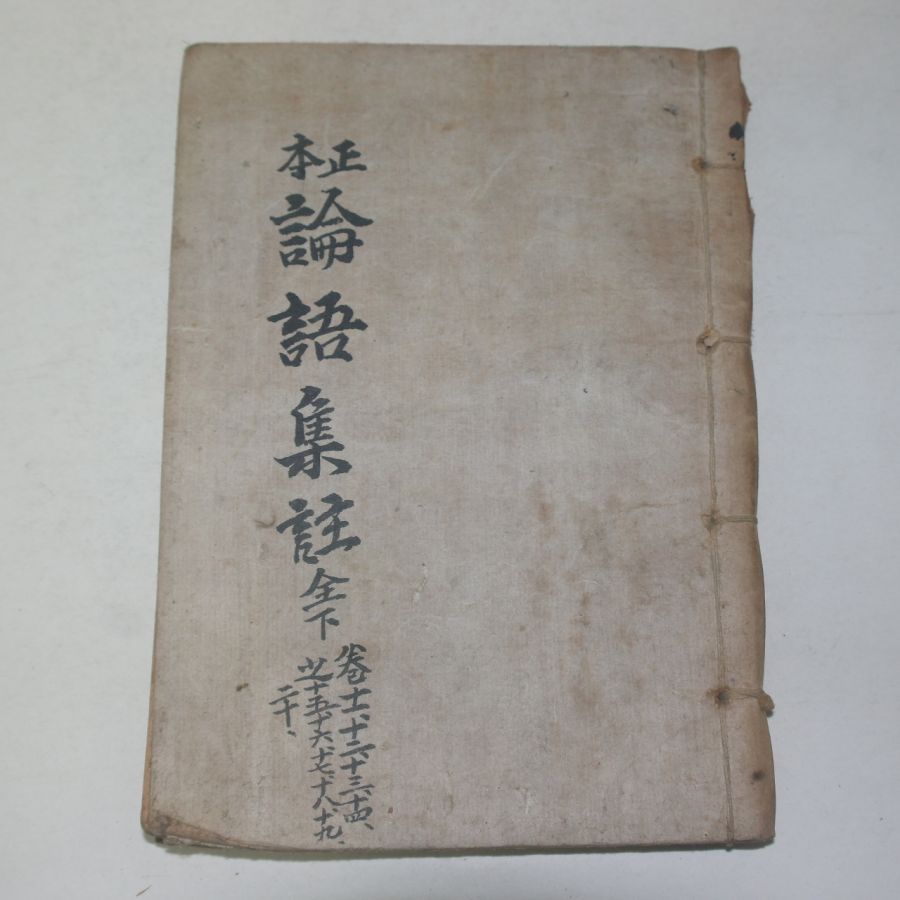 正本
論語集註 全下
卷十一、十二、十三、十四、
之十五、十六、十七、十八、十九、
二十、